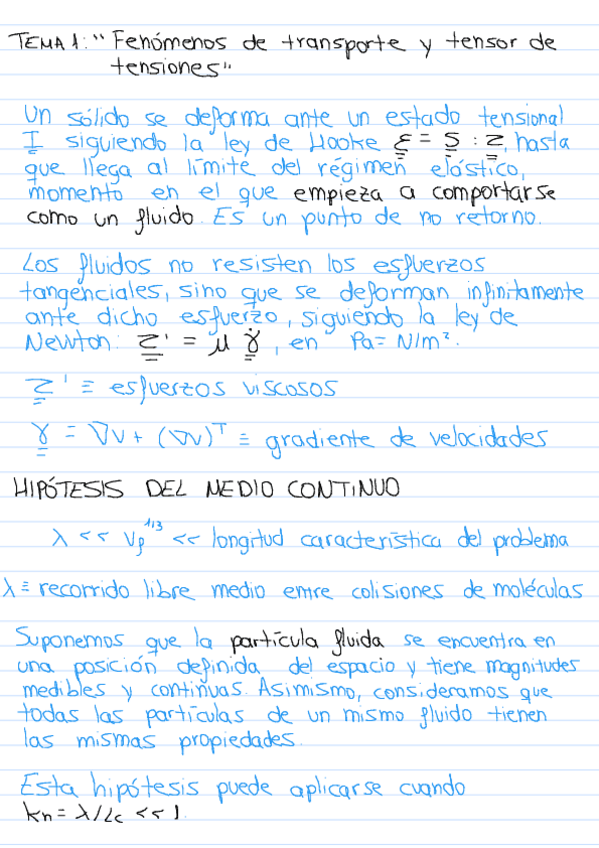 TEMA 1: "Fenómenos de transporte y tensor de
tensiones"
Un sólido se deforma ante un estado tensional
I siguiendo la ley de Hooke ε = S : Z, hasta
que llega al límite del régimen elástico,
momento en el que empieza a comportarse
como un fluido. Es un punto de no retorno.
Los fluidos no resisten los esfuerzos
tangenciales, sino que se deforman infinitamente
ante dicho esfuerzo, siguiendo la ley de
Newton: Z' = μ γ̇, en Pa = N/m².
Z' ≡ esfuerzos viscosos
γ = ∇v + (∇v)ᵀ ≡ gradiente de velocidades
HIPÓTESIS DEL MEDIO CONTINUO
λ << Vp^1/3 << longitud característica del problema
λ ≡ recorrido libre medio entre colisiones de moléculas
Suponemos que la partícula fluida se encuentra en
una posición definida del espacio y tiene magnitudes
medibles y continuas. Asimismo, consideramos que
todas las partículas de un mismo fluido tienen
las mismas propiedades.
Esta hipótesis puede aplicarse cuando
kn = λ/Lc << 1.